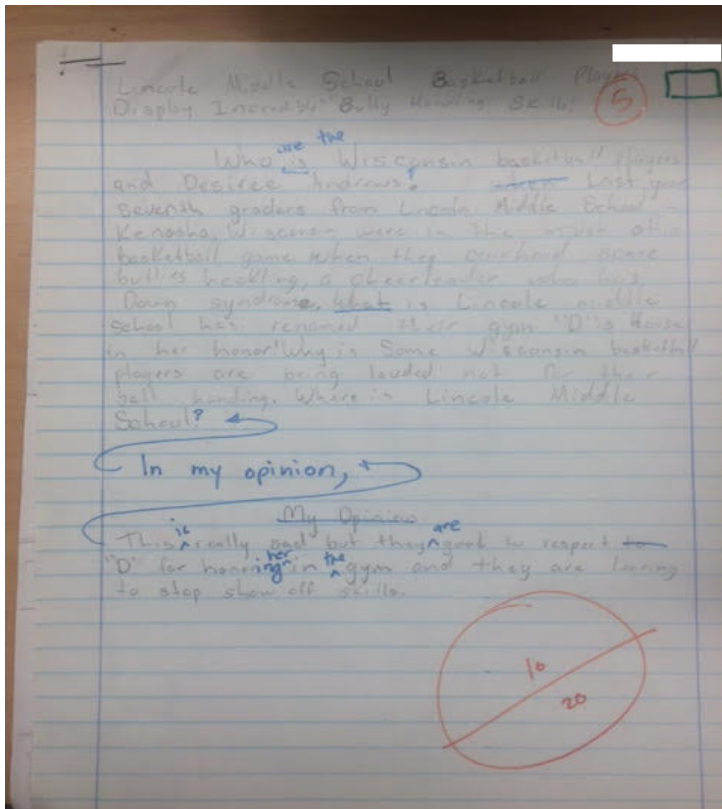 Lincole Middle School Basketball Players
Display Incredible "Bully Handling Skills!
5
are the
Who is Wisconsin basketball players
and Desiree Andrews? when Last year
Seventh graders from Lincoln Middle School
Kenosha, Wiscons were in the midst of a
basketball game when they overheard some
bullies heckling, a cheerleader who has
Down syndrome, What is Lincole middle
School has renamed their gym "D"'s House
in her honor! Why is Some Wisconsin basketball
players are being lauded not for their
ball handing. Where is Lincole Middle
School?
In my opinion,
My Opinion
is are
This really sad but they good to respect to
her the
"D" for honoring in gym and they are
to stop show off skills.
10
20